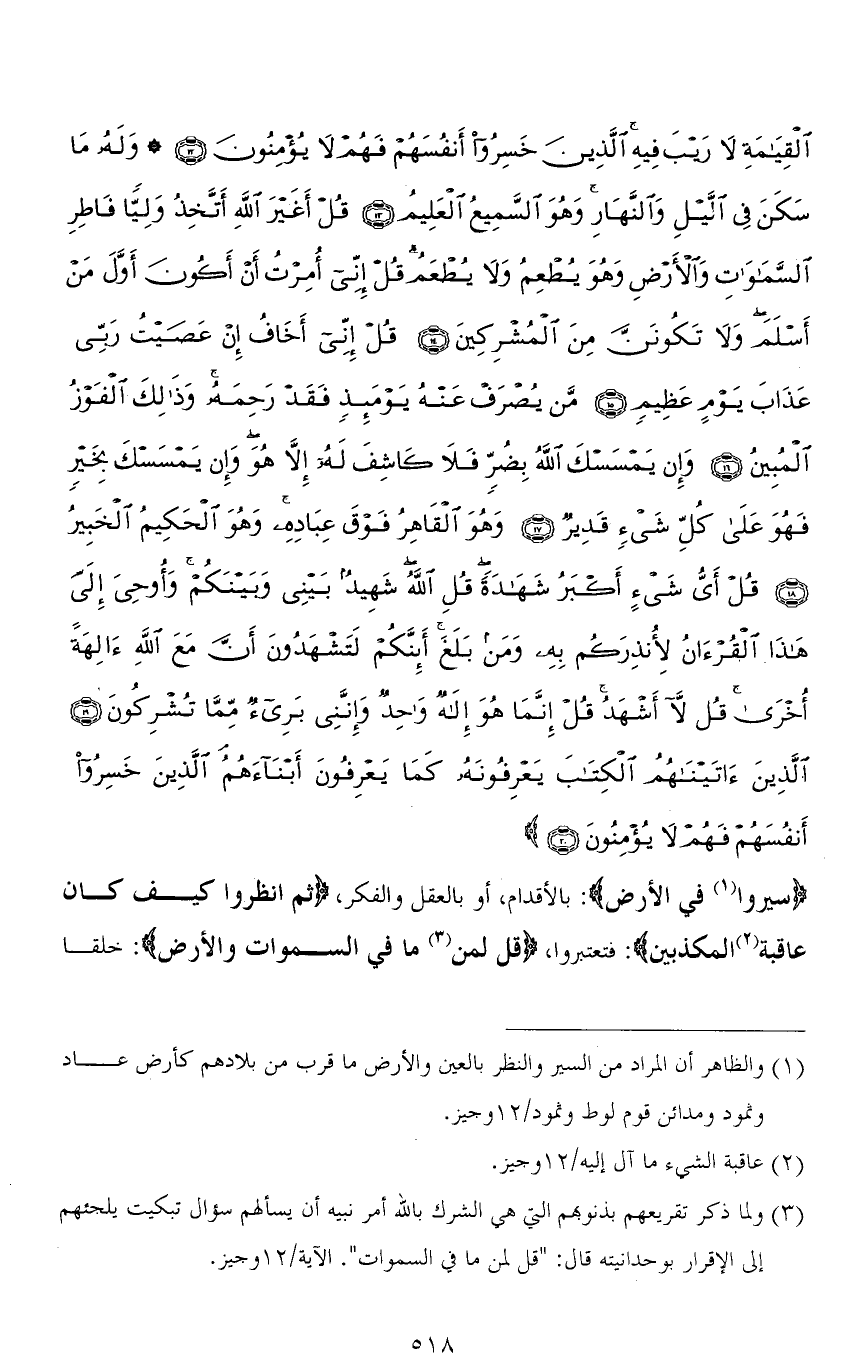 ٱلۡقِيَٰمَةِ لَا رَيۡبَ فِيهِۚ ٱلَّذِينَ خَسِرُوٓاْ أَنفُسَهُمۡ فَهُمۡ لَا يُؤۡمِنُونَ ١٢ ۞ وَلَهُۥ مَا
سَكَنَ فِي ٱلَّيۡلِ وَٱلنَّهَارِۚ وَهُوَ ٱلسَّمِيعُ ٱلۡعَلِيمُ ١٣ قُلۡ أَغَيۡرَ ٱللَّهِ أَتَّخِذُ وَلِيّٗا فَاطِرِ
ٱلسَّمَٰوَٰتِ وَٱلۡأَرۡضِ وَهُوَ يُطۡعِمُ وَلَا يُطۡعَمُۗ قُلۡ إِنِّيٓ أُمِرۡتُ أَنۡ أَكُونَ أَوَّلَ مَنۡ
أَسۡلَمَۖ وَلَا تَكُونَنَّ مِنَ ٱلۡمُشۡرِكِينَ ١٤ قُلۡ إِنِّيٓ أَخَافُ إِنۡ عَصَيۡتُ رَبِّي
عَذَابَ يَوۡمٍ عَظِيمٖ ١٥ مَّن يُصۡرَفۡ عَنۡهُ يَوۡمَئِذٖ فَقَدۡ رَحِمَهُۥۚ وَذَٰلِكَ ٱلۡفَوۡزُ
ٱلۡمُبِينُ ١٦ وَإِن يَمۡسَسۡكَ ٱللَّهُ بِضُرّٖ فَلَا كَاشِفَ لَهُۥٓ إِلَّا هُوَۖ وَإِن يَمۡسَسۡكَ بِخَيۡرٖ
فَهُوَ عَلَىٰ كُلِّ شَيۡءٖ قَدِيرٞ ١٧ وَهُوَ ٱلۡقَاهِرُ فَوۡقَ عِبَادِهِۦۚ وَهُوَ ٱلۡحَكِيمُ ٱلۡخَبِيرُ
١٨ قُلۡ أَيُّ شَيۡءٍ أَكۡبَرُ شَهَٰدَةٗۖ قُلِ ٱللَّهُۖ شَهِيدُۢ بَيۡنِي وَبَيۡنَكُمۡۚ وَأُوحِيَ إِلَيَّ
هَٰذَا ٱلۡقُرۡءَانُ لِأُنذِرَكُم بِهِۦ وَمَنۢ بَلَغَۚ أَئِنَّكُمۡ لَتَشۡهَدُونَ أَنَّ مَعَ ٱللَّهِ ءَالِهَةً
أُخۡرَىٰۚ قُل لَّآ أَشۡهَدُۚ قُلۡ إِنَّمَا هُوَ إِلَٰهٞ وَٰحِدٞ وَإِنَّنِي بَرِيٓءٞ مِّمَّا تُشۡرِكُونَ ١٩
ٱلَّذِينَ ءَاتَيۡنَٰهُمُ ٱلۡكِتَٰبَ يَعۡرِفُونَهُۥ كَمَا يَعۡرِفُونَ أَبۡنَآءَهُمُۘ ٱلَّذِينَ خَسِرُوٓاْ
أَنفُسَهُمۡ فَهُمۡ لَا يُؤۡمِنُونَ ٢٠ ﴾
﴿سيروا(١) في الأرض﴾: بالأقدام، أو بالعقل والفكر، ﴿ثم انظروا كيف كان
عاقبة(٢) المكذبين﴾: فتعتبروا، ﴿قل لمن(٣) ما في السموات والأرض﴾: خلقا
(١) والظاهر أن المراد من السير والنظر بالعين والأرض ما قرب من بلادهم كأرض عاد
وثمود ومدائن قوم لوط وثمود/١٢وجيز.
(٢) عاقبة الشيء ما آل إليه/١٢وجيز.
(٣) ولما ذكر تقريعهم بذنوبهم التي هي الشرك بالله أمر نبيه أن يسألهم سؤال تبكيت يلجئهم
إلى الإقرار بوحدانيته قال: "قل لمن ما في السموات". الآية/١٢وجيز.
٥١٨